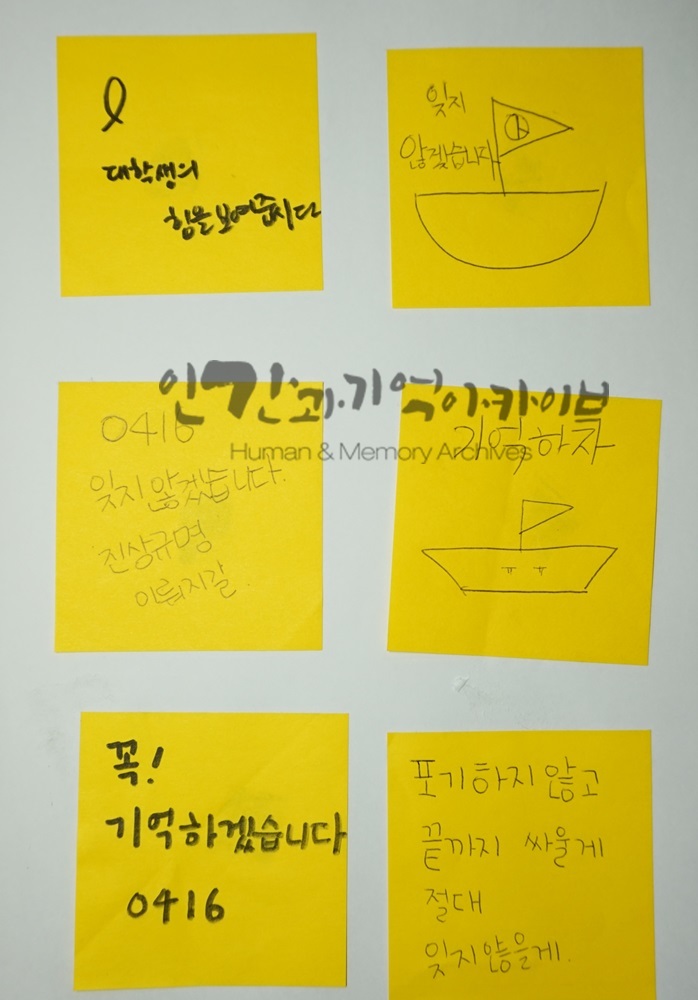 대학생의
힘을 보여줍시다
잊지
않겠습니다
인간과·기억아·카이브
Human & Memory Archives
0416
잊지 않겠습니다.
진상규명
이뤄지길.
기억하자
ㅠ ㅠ
꼭!
기억하겠습니다
0416
포기하지 않고
끝까지 싸울게
절대
잊지않을게.